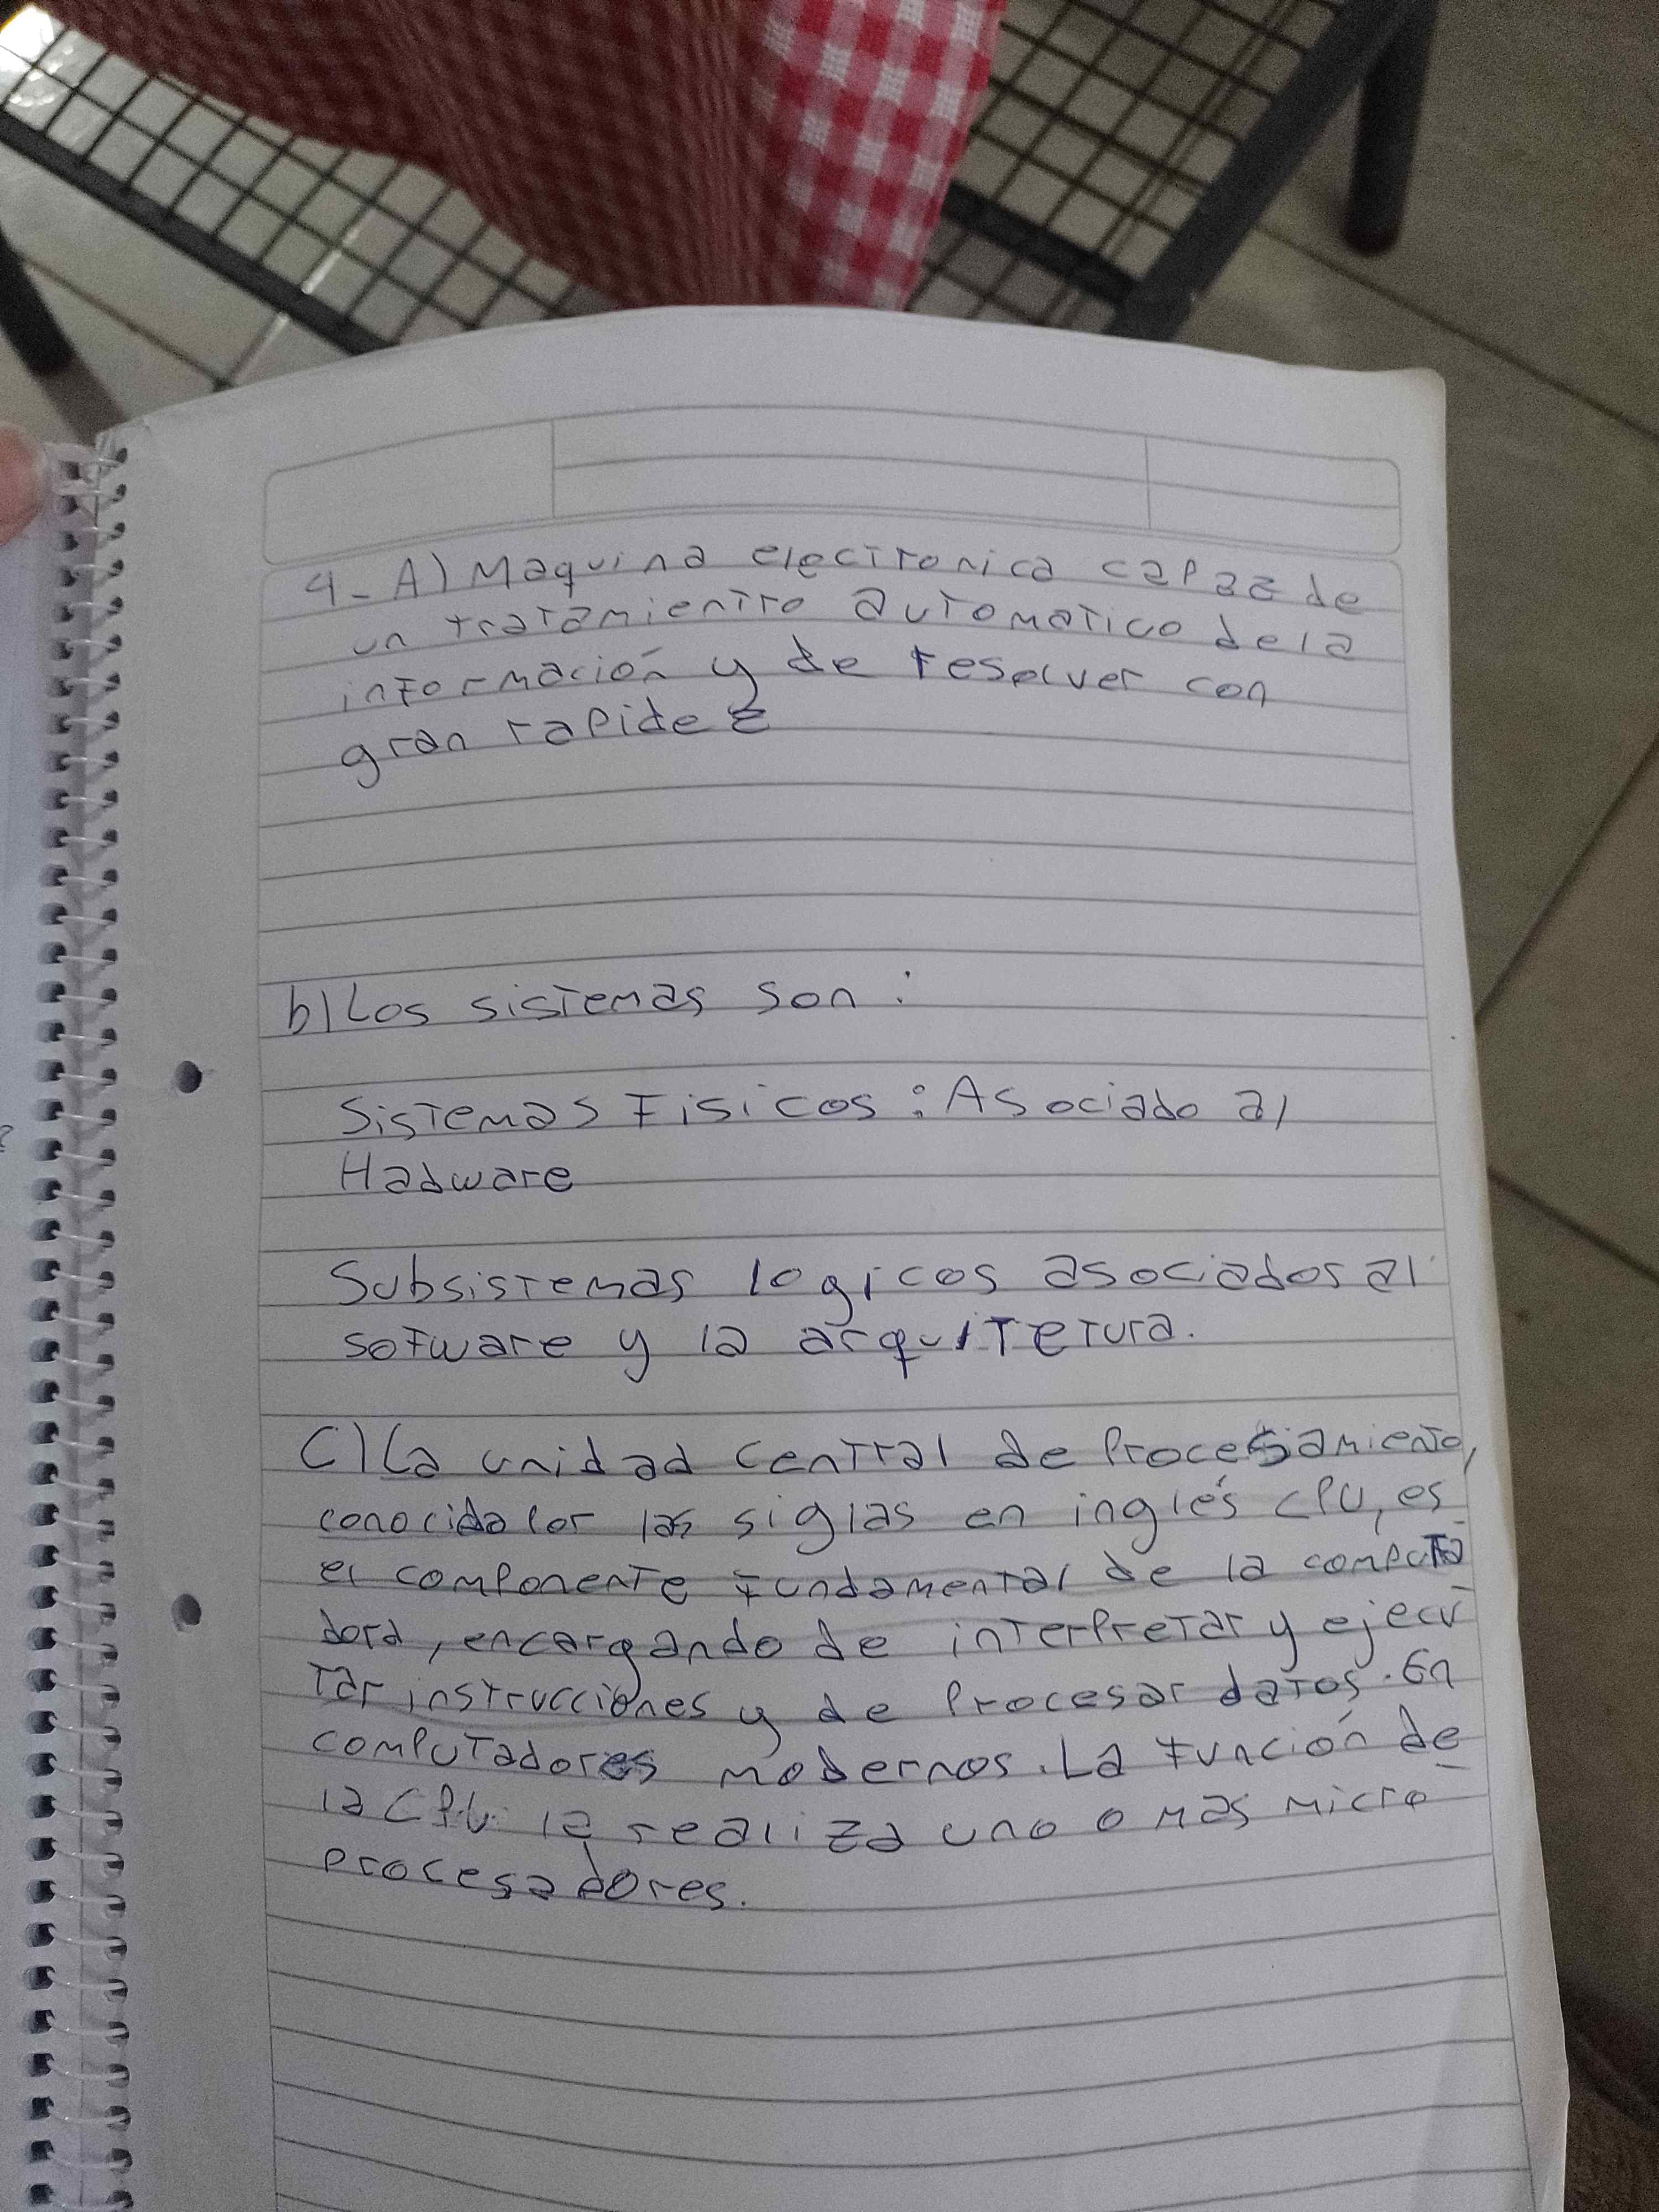 4- A) Maquina electronica capaz de
un tratamientro automatico de la
información y de resolver con
gran rapidez
b) Los sistemas son :
Sistemas Fisicos : Asociado al
Hadware
Subsistemas logicos asociados al
sofware y la arquitetura.
C) La unidad central de Procesamiento,
conocida por las siglas en inglés CPU, es
el componente fundamental de la computa
dora, encargando de interpretar y ejecu
tar instrucciones y de procesar datos. En
computadores modernos. La función de
la CPU la realiza uno o mas micro
procesadores.